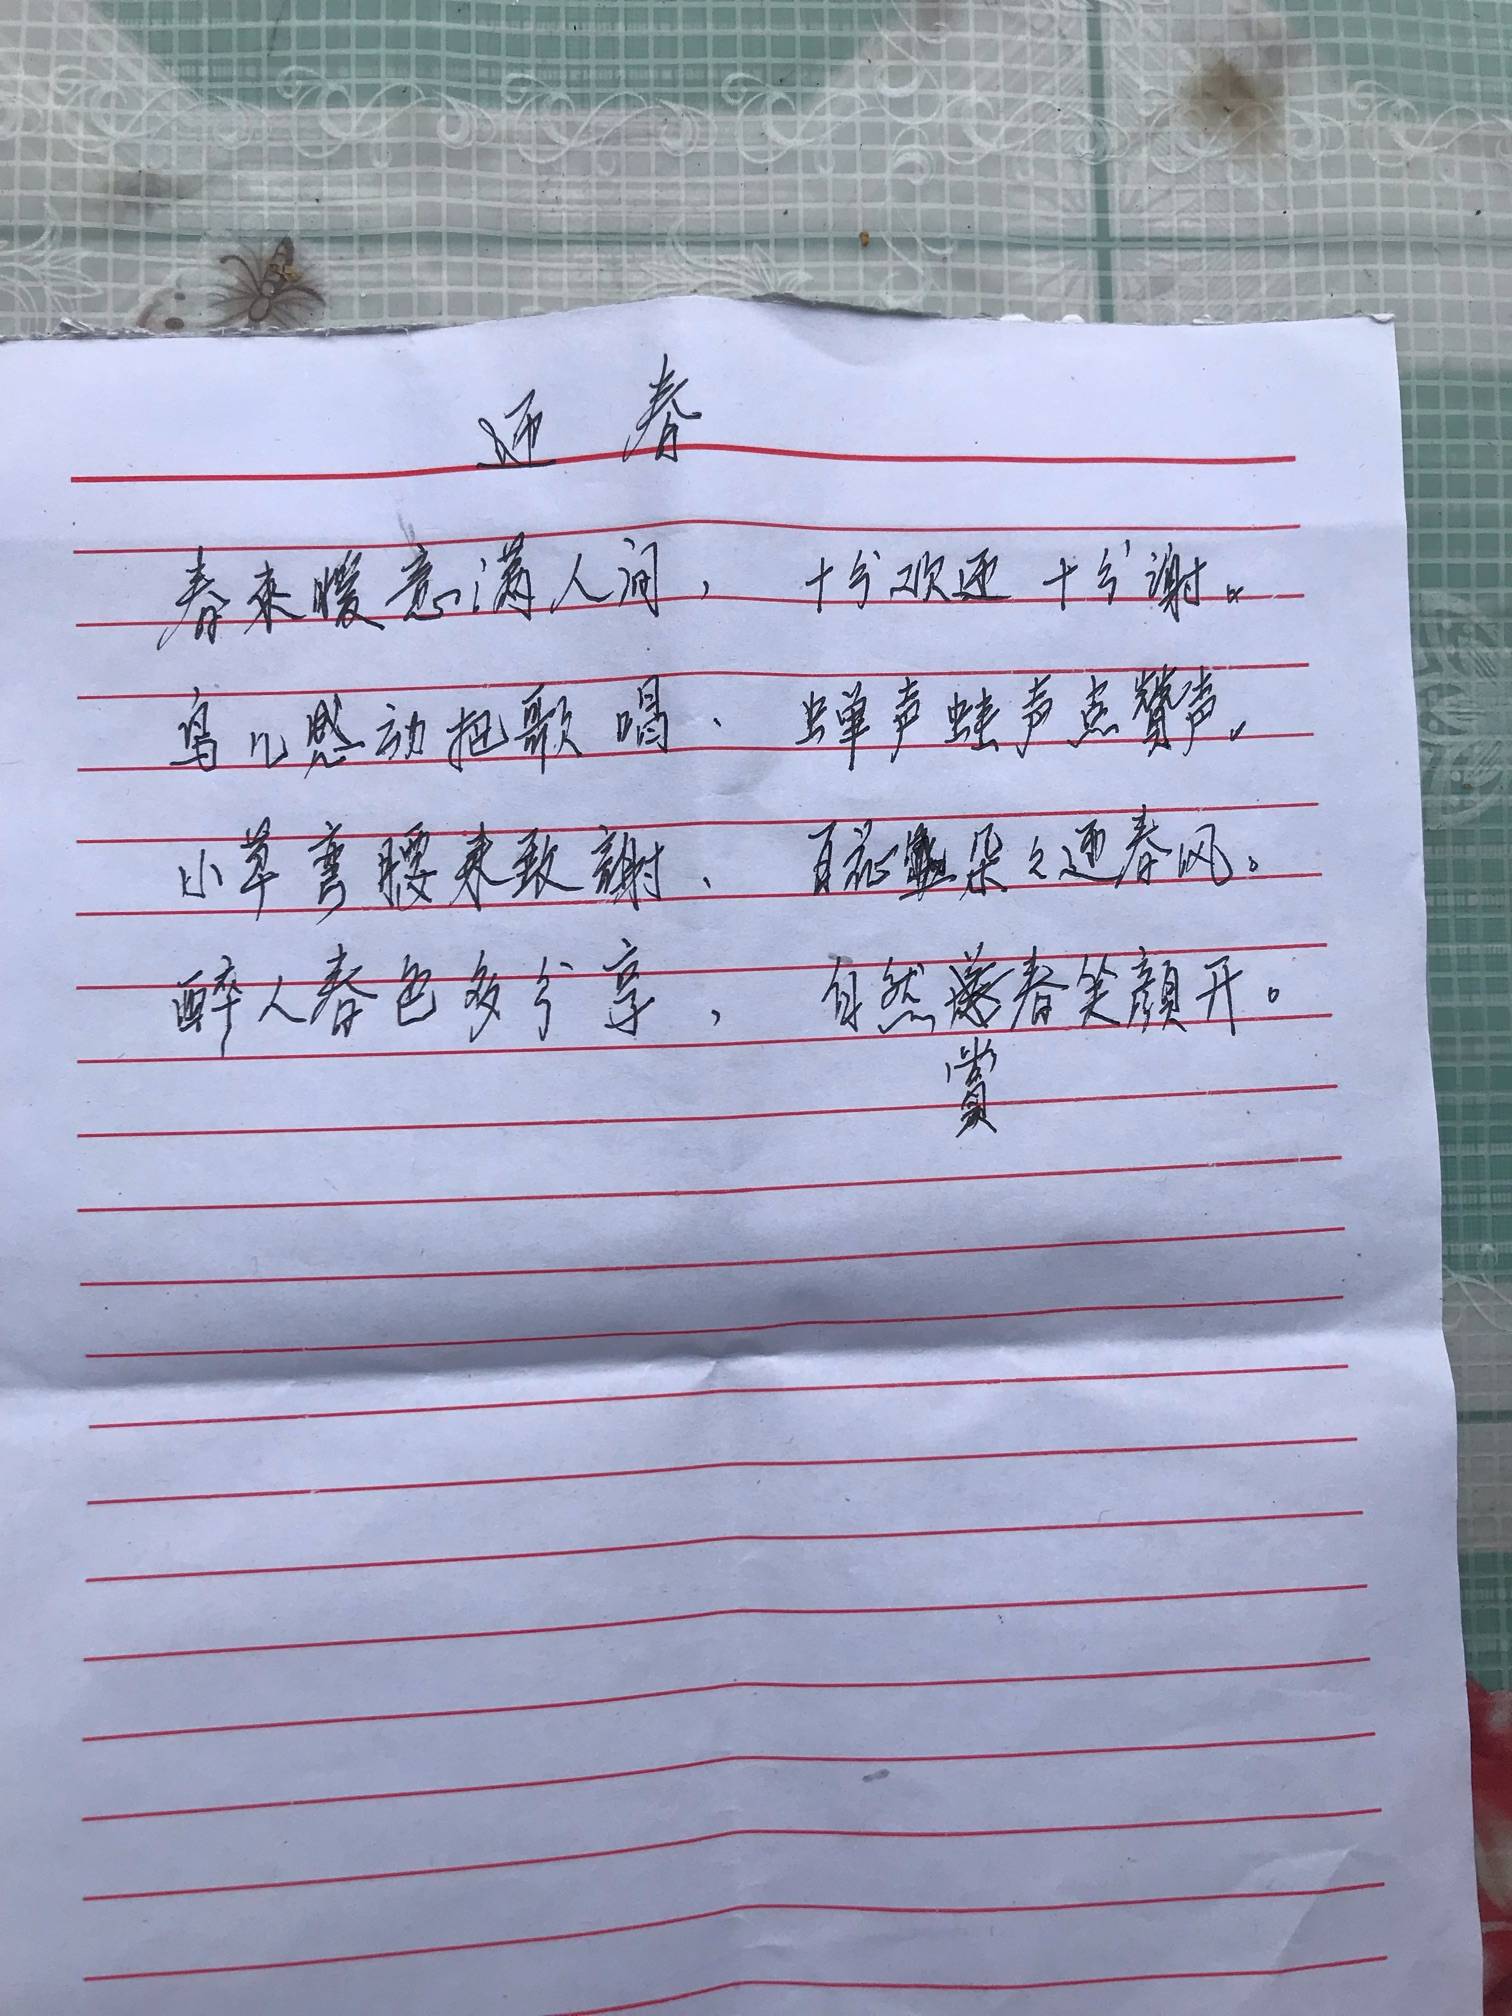 迎春
春來暖意满人间，十分欢迎十分谢。
鸟儿感动把歌唱、蝉声蛙声点赞声。
小草弯腰来致謝、百花朵々迎春风。
醉人春色多分享，自然春笑顔开。
賞